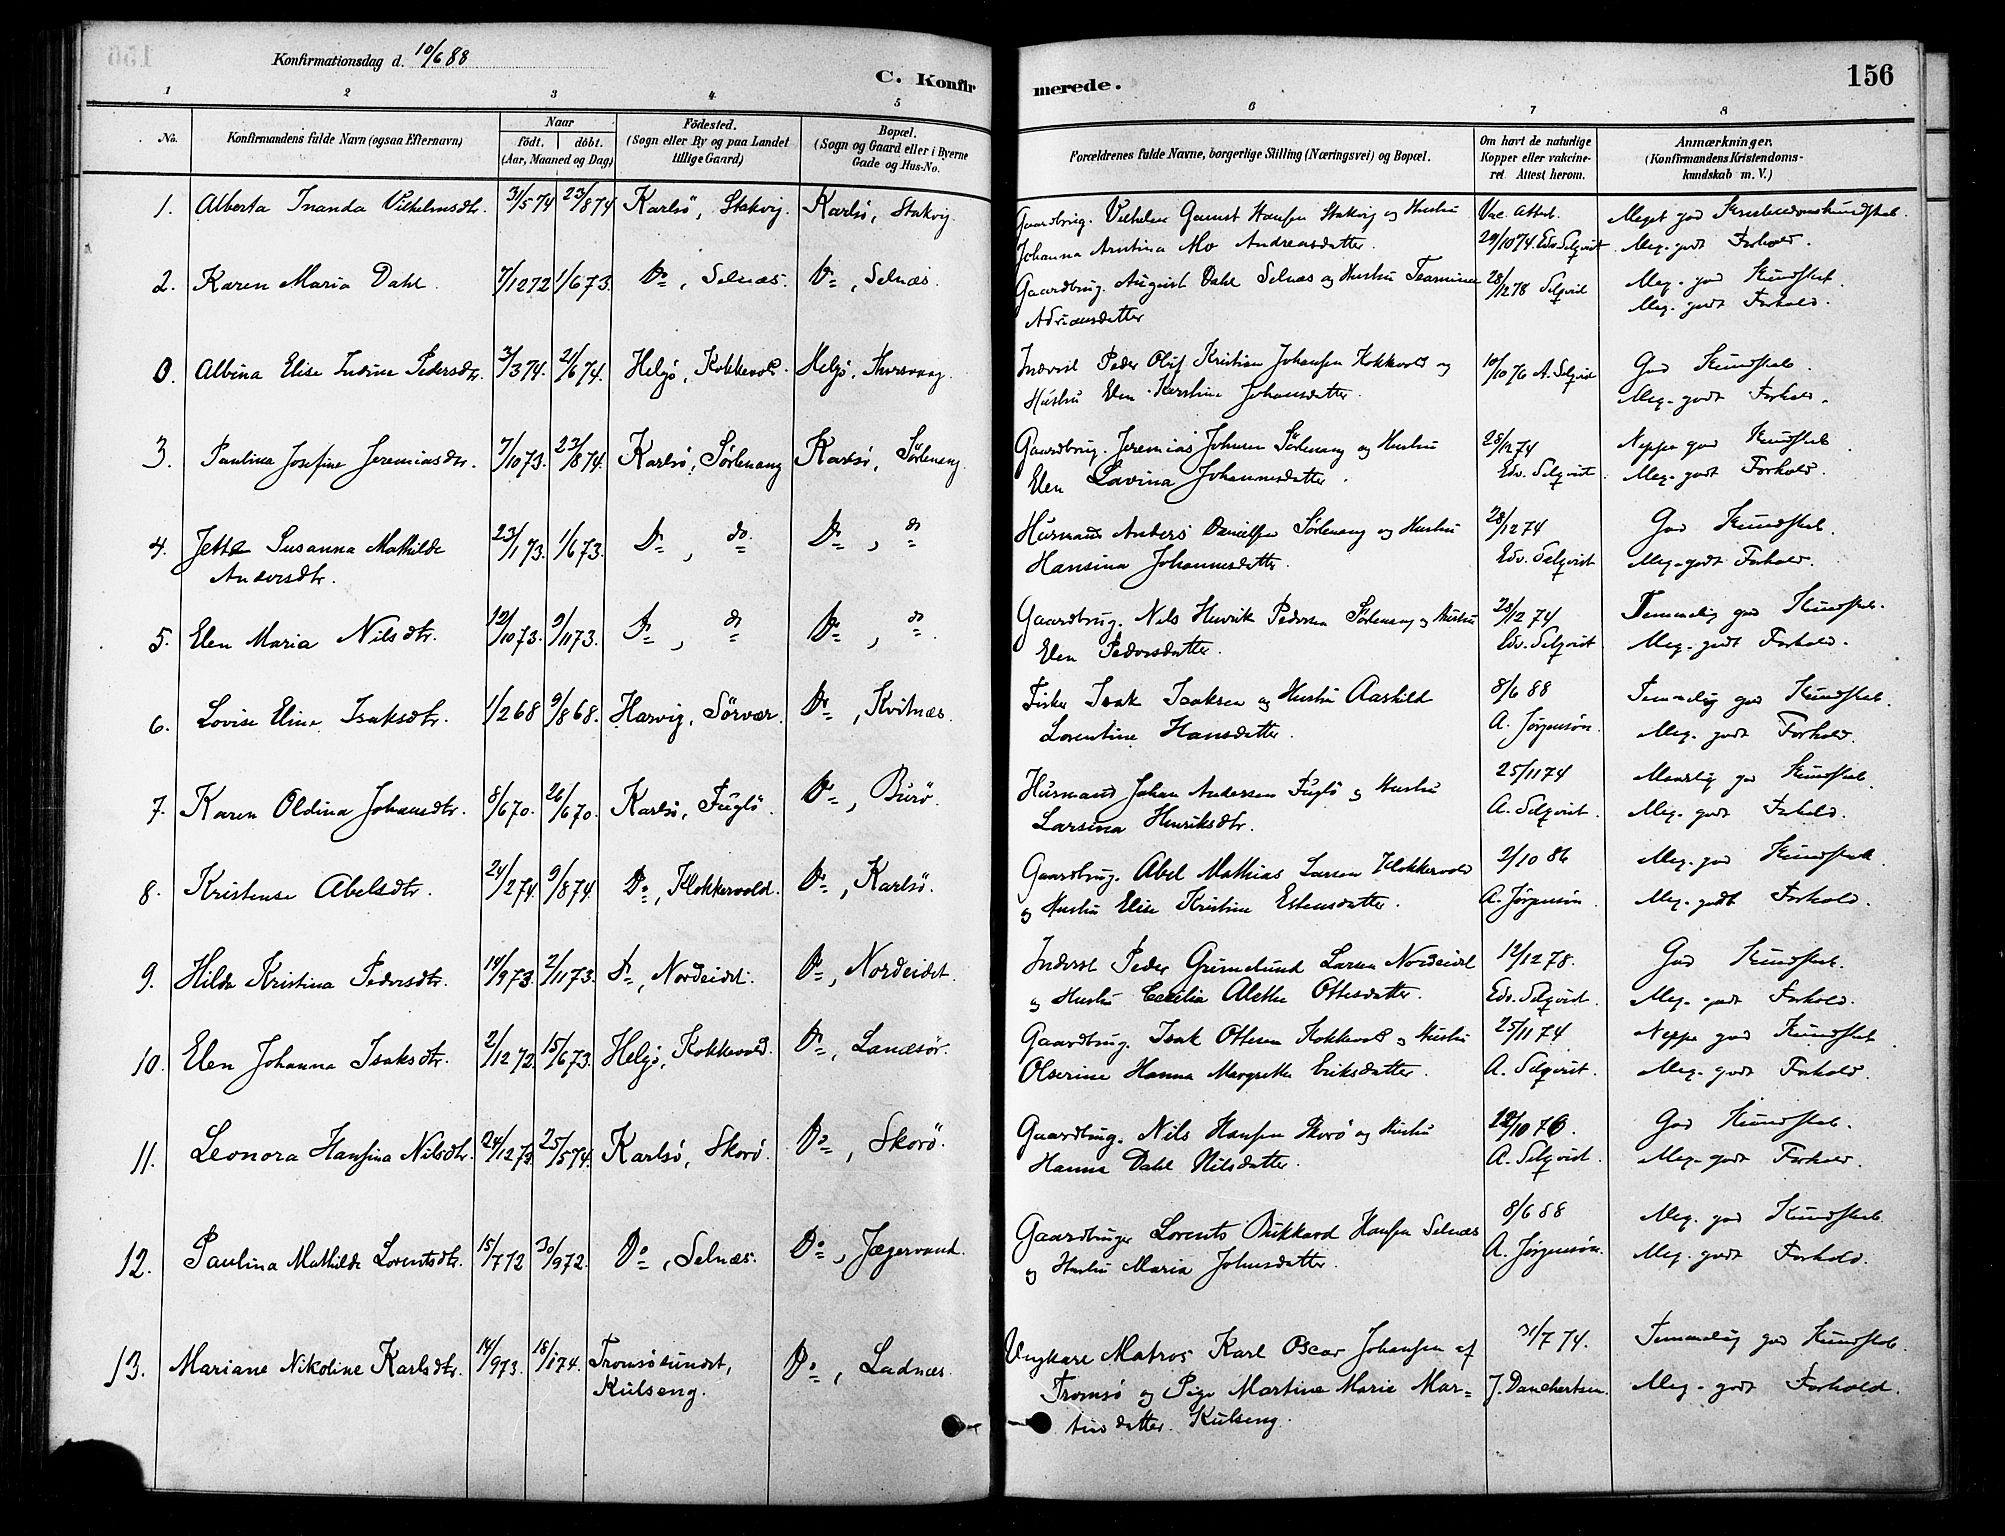 Konfirmationsdag d. 10/6 88
C. Konfirmerede.
156
1 2 3 4 5 6 7 8
No.
Konfirmandens fulde Navn (ogsaa Efternavn)
Naar
födt. döbt.
(Aar, Maaned og Dag)
Födested.
(Sogn eller By og paa Landet
tillige Gaard)
Bopæl.
(Sogn og Gaard eller i Byerne
Gade og Hus-No.
Forældrenes fulde Navne, borgerlige Stilling (Næringsvei) og Bopæl.
Om havt de naturlige
Kopper eller vakcine-
ret. Attest herom.
Anmærkninger.
(Konfirmandens Kristendoms-
kundskab m. V.)
1. Alberta Inanda Vilhelmsdtr. 31/5 74 23/8 74 Karlsö, Stakvig. Karlsö, Stakvig. Gaardbrug. Vilhelm Gamst Hansen Stakvig og Hustru Vac. Attest. Meget god Kristendomskundskab.
Johanna Arntina Mo Andreasdatter. 29/10 74 Edv. Selqvist Meg. godt Forhold.
2. Karen Maria Dahl. 7/12 72 1/6 73. Do, Selnæs. Do, Selnæs. Gaardbrug. August Dahl Selnæs og Hustru 28/12 78 Selqvist Meg. god Kundskab.
Adriansdatter Meg. godt Forhold.
0. Albina Elise Indine Pedersdtr. 3/3 74. 21/6 74. Helgö, Kokkevold. Helgö, Thorsvaag. Inderst Peder Oluf Kristian Johansen Kokkvold og 10/10 76 A. Selqvist God Kundskab.
Hustru Elen Kerstine Johansdatter. Meg. godt Forhold.
3. Paulina Josefine Jeremiasdtr. 7/10 73. 23/8 74. Karlsö, Sörlenang Karlsö, Sörlenang. Gaardbrug. Jeremias Johnsen Sörlenang og Hustru 28/12 74 Neppe god Kundskab.
Elen Lavina Johannesdatter. Edv. Selqvist. Meg. godt Forhold.
4. Jette Susanna Mathilde 23/1 73. 1/6 73. Do, do Do, do Husmand Anders Danielsen Sörlenang og Hustru 28/12 74 God Kundskab.
Andersdtr. Hansina Johannesdatter. Edv. Selqvist Meg. godt Forhold.
5. Elen Maria Nilsdtr. 12/10 73. 9/11 73. Do, do Do, do Gaardbrug. Nils Henrik Pedersen Sörlenang og Hustru 28/12 74 Temmelig god Kundskab.
Elen Pedersdatter. Edv. Selqvist Meg. godt Forhold.
6. Lovise Eline Isaksdtr. 1/2 68 9/8 68. Hasvig, Sörvær. Do, Kvitnæs. Fisker Isak Isaksen og Hustru Aashild 8/6 88 Temmelig god Kundskab.
Lorentine Hansdatter. A. Jörgensön. Meg. godt Forhold.
7. Karen Oldina Johansdtr. 8/6 70. 26/6 70. Karlsö, Fuglö. Do, Burö. Husmand Johan Andersen Fuglö og Hustru 25/11 74 Maadelig god Kundskab.
Larsina Henriksdtr. A. Selqvist. Meg. godt Forhold.
8. Kristense Abelsdtr. 24/2 74. 9/8 74. Do, Klokkervold. Do, Karlsö. Gaardbrug. Abel Mathias Larsen Klokkervold 2/10 86 Meg. god Kundskab.
og Hustru Elise Kristine Estensdatter. A. Jörgensön Meg. godt Forhold.
9. Hilda Kristina Pedersdtr. 14/9 73. 2/11 73. Do, Nordeidet. Do, Nordeidet. Inderst Peder Grimelund Larsen Nordeidet 12/12 78. God Kundskab.
og Hustru Cecilia Alethe Ottesdatter. Edv. Selqvist. Meg. godt Forhold.
10. Elen Johanna Isaksdtr. 2/12 72. 15/6 73. Helgö, Kokkevold. Do, Landsör. Gaardbrug. Isak Ottesen Kokkvold og Hustru 25/11 74 Neppe god Kundskab.
Olserine Hanna Margrethe Eriksdatter. A. Selqvist. Meg. godt Forhold.
11. Leonora Hansina Nilsdtr. 24/12 73. 25/5 74. Karlsö, Skorö. Do, Skorö. Gaardbrug. Nils Hansen Skorö og Hustru 12/10 76. God Kundskab.
Hanna Dahl Nilsdatter. A. Selqvist. Meg. godt Forhold.
12. Paulina Mathilde Lorentsdtr. 15/7 72 30/9 72. Do, Selnæs. Do, Jægervand. Gaardbruger Lorents Hansen Selnæs 8/6 88 Meg. god Kundskab
og Hustru Maria Johnsdatter. A. Jörgensön. Meg. godt Forhold.
13. Mariane Nikoline Karlsdtr. 14/9 73. 18/1 74. Tromsösundet, Do, Ladnæs. Ungkarl Matros Karl Oscar Johansen af 31/7 74. Temmelig god Kundskab.
Kulseng. Tromsö og Pige Martine Marie Mar= J. Danchertsen. Meg. godt Forhold.
tinsdatter Kulseng.